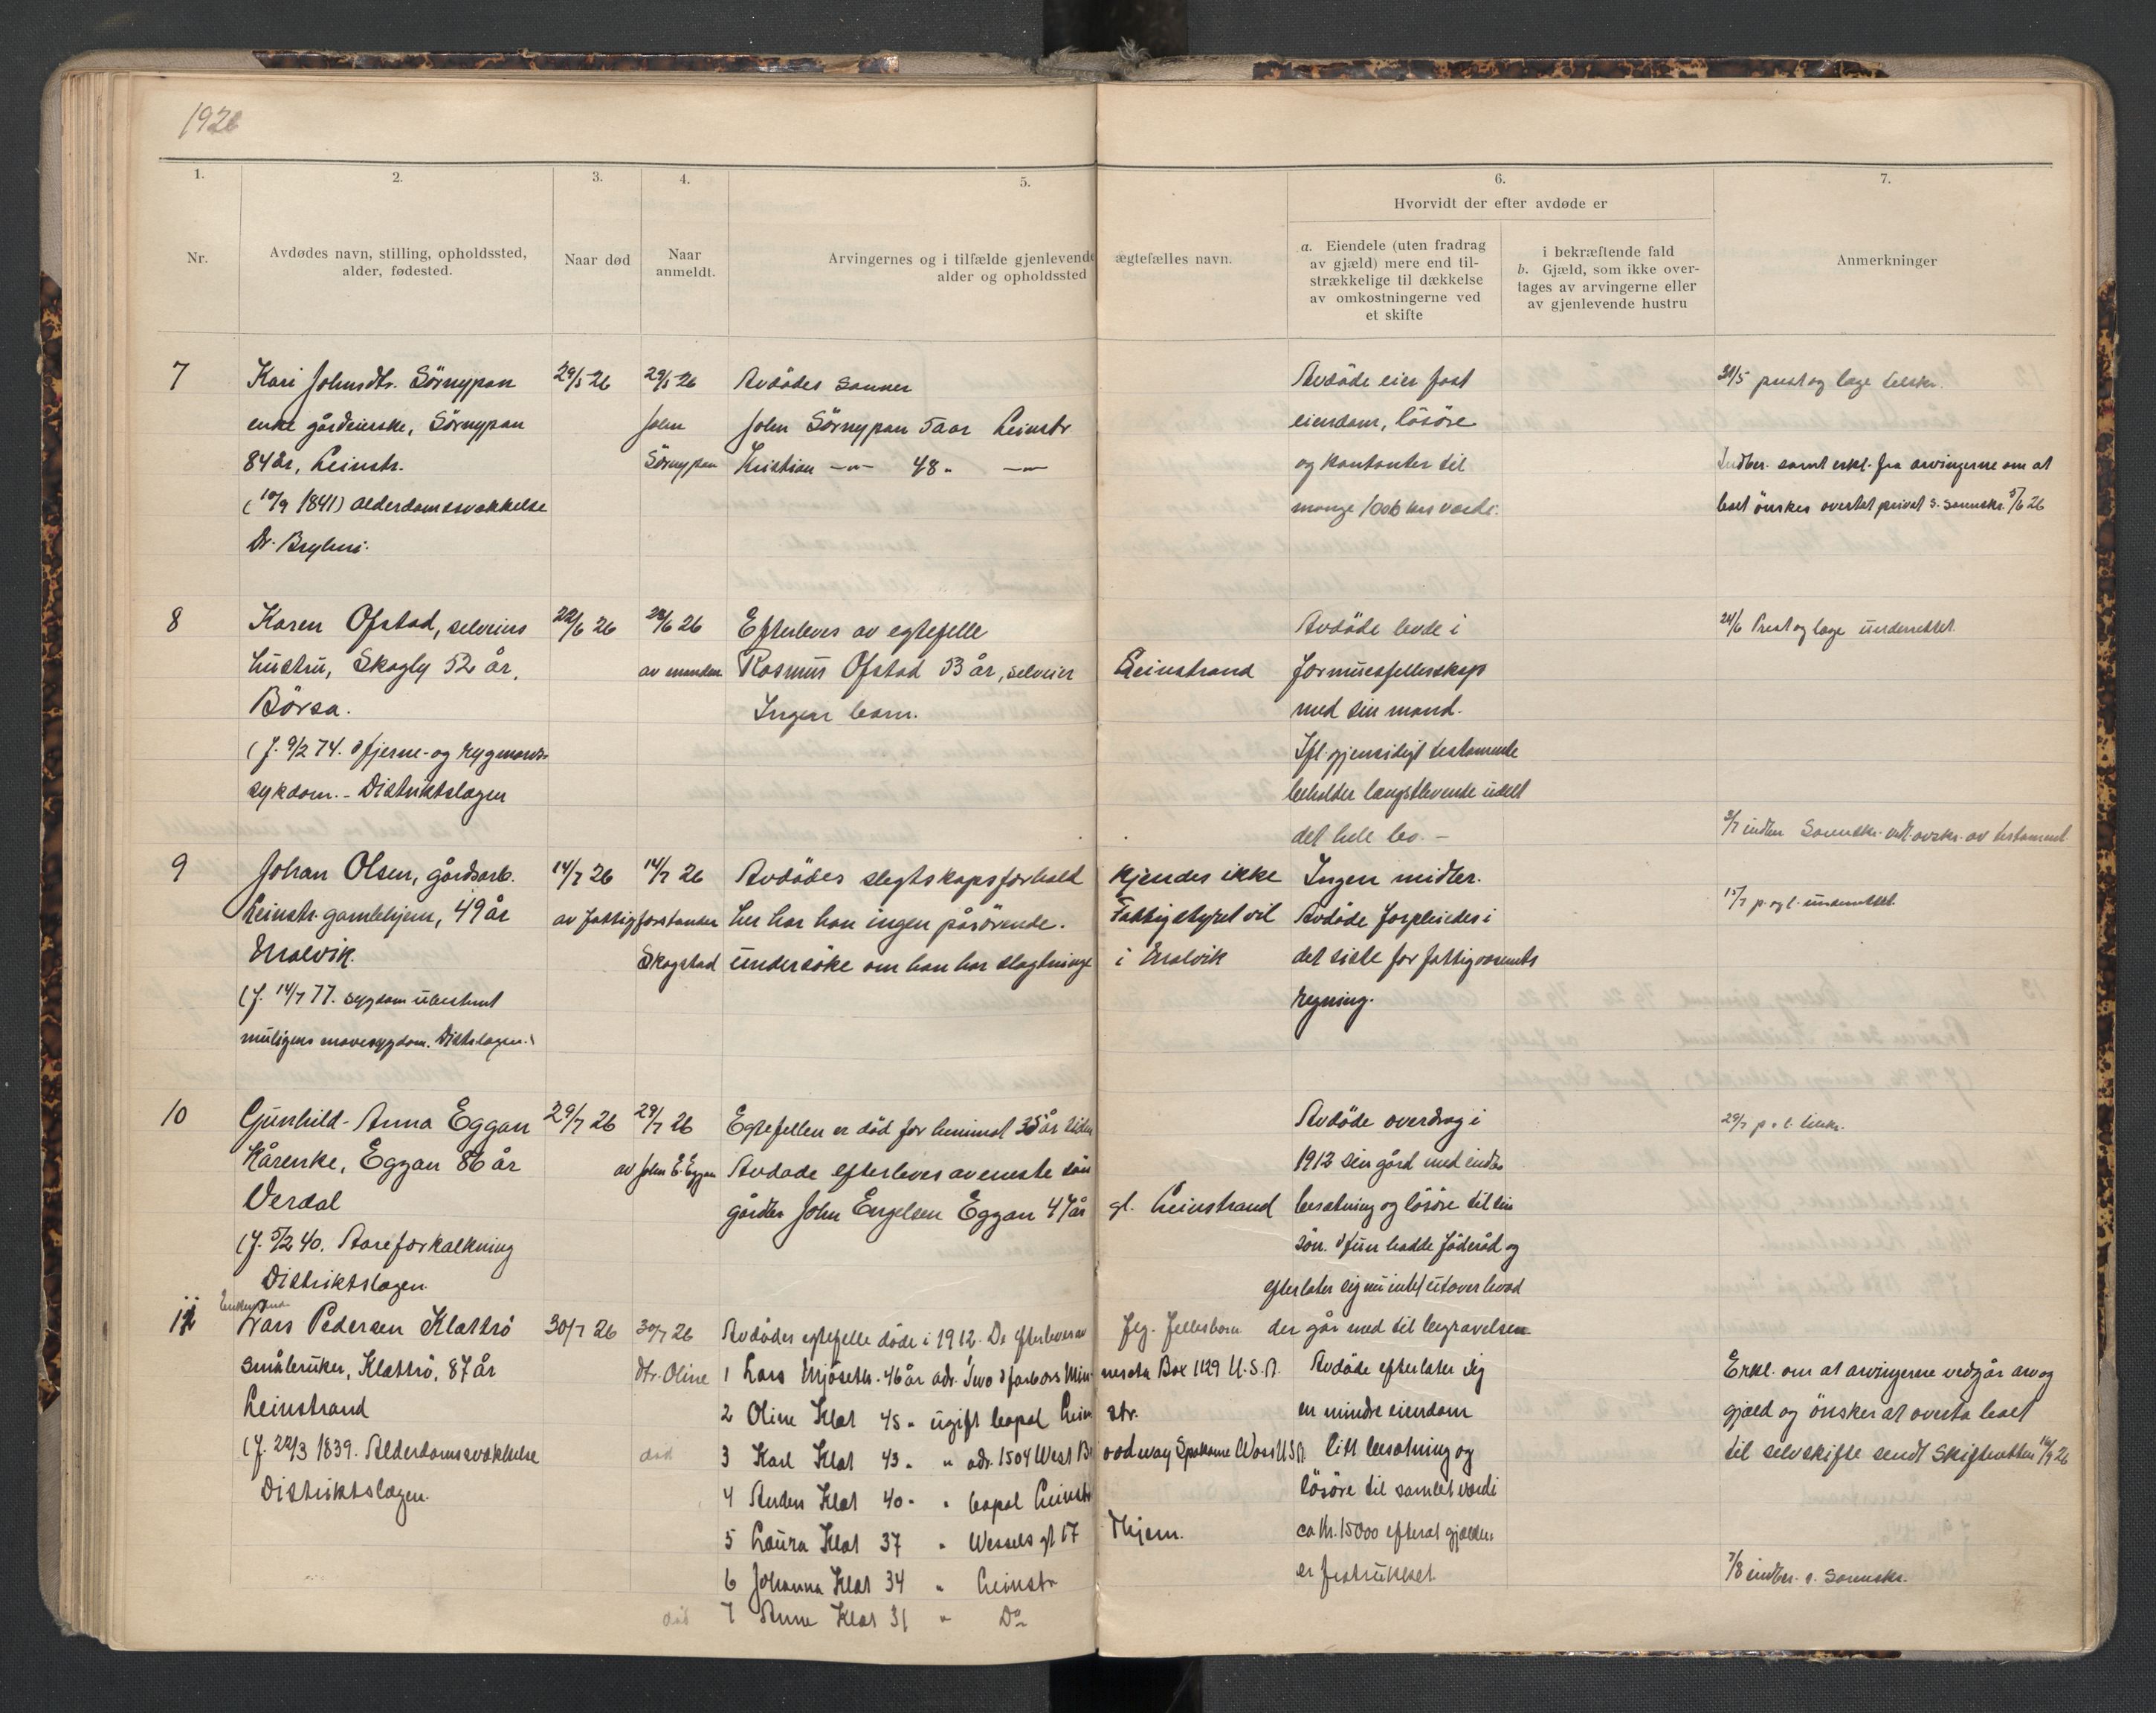 1926
1. 2. 3. 4. 5. 6. 7.
Hvorvidt der efter avdøde er
Nr.
Avdødes navn, stilling, opholdssted,
alder, fødested.
Naar død
Naar
anmeldt.
Arvingernes og i tilfælde gjenlevende ægtefælles navn.
alder og opholdssted
a. Eiendele (uten fradrag
av gjæld) mere end til-
strækkelige til dækkelse
av omkostningerne ved
et skifte
i bekræftende fald
b. Gjæld, som ikke over-
tages av arvingerne eller
av gjenlevende hustru
Anmerkninger
7
Kari Johnsdtr. Sörnypan
enke gårdeierske, Sörnypan
84 år, Leinstr.
(10/9 1841) Alderdomssvakkelse
Dr.
29/5 26
29/5 26
John
Sörnypan
Avdödes sönner
John Sörnypan 5 aar Leinstr
Kristian —"— 48 " —"—
Avdöde eier fast
eiendom, lösöre
og kontanter til
mange 1000 krs verdi.
31/5 prest og læge
Indber. samt erkl. fra arvingerne om at
boet önskes overtat privat s. sorenskr. 5/6 26
8
Karen Ofstad, selveiers
hustru, Skogly 52 år,
Börsa.
(f. 9/2 74. Hjerne- og rygmarvs-
sykdom. - Distriktslægen
22/6 26
av manden
Efterleves av egtefelle
Rasmus Ofstad 53 år, selveier Leinstrand
Ingen barn.
Avdöde levde i
formuesfellesskap
med sin mand.
Ifl. gjensidigt testamente
beholder længstlevende udelt
det hele bo. -
24/6 Prest og læge underrettet.
indber Sorenskr. vedl. avskr. av testament
9
Johan Olsen, gårdsarb.
Leinstr. gamlehjem, 49 år
Enebakk
(f. 14/7 77. sygdom ubestemt
muligens mavesygdom. Distrslægen.)
14/7 26
14/7 26
av fattigforstander
Skogstad
Avdödes slegtskapsforhold kjendes ikke
her har han ingen pårörende. Fattigstyret vil
undersöke om han har slægtninge i
Ingen midler.
Avdöde forpleiedes i
det siste for fattigvæsenets
regning.
15/7 p. og l. underrettet.
10
Gunhild-Anna Eggan
Kårenke, Eggan 86 år
Verdal
(f. 5/2 40. Aareforkalkning
Distriktslægen.
29/7 26
29/7 26
av John E. Eggan
Egtefellen er död for henimot 35 år siden
Avdöde efterleves av eneste sön
gårdbr John Engelsen Eggan 47 år gl. Leinstrand
Avdöde overdrog i
1912 sin gård med
besætning og lösöre til sin
sön. Hun hadde föderåd og
efterlater sig nu intet utover hvad
der går med til begravelsen.
29/7 p. l.
11
Enkemand
Lars Pedersen Klættrö
småbruker, Klættrö, 87 år
Leinstrand
(f. 22/3 1839. Alderdomssvakkelse
Distriktslægen.
30/7 26
30/7 26
dtr. Oline
Avdödes egtefelle döde i 1912. De efterleves av flg. fellesbarn
1 Lars Mjösetr. 46 år adr. Two Harbors Minnesota Box 1129 U.S.A.
2 Oline Klæt 45 " ugift bopæl Leinstr.
död 3 Karl Klæt 43 " " adr. 1504 West Broadway Spokane Wash U.S.A.
4 Anders Klæt 40 " " bopæl Leinstr
5 Laura Klæt 37 " Wessels gt 17 Thjem.
6 Johanna Klæt 34 " Leinstr
död 7 Anne Klæt 31 " Do
Avdöde efterlater sig
en mindre eiendom
litt besætning og
lösöre til samlet verdi
ca Kr. 15000 efterat gjelden
er fratrukket.
Erkl. om at arvingerne vedgår arv og
gjæld og önsker at overta boet
til selvskifte sendt Skifteretten 16/9 26
7/8 indber. s. Sorenskr.